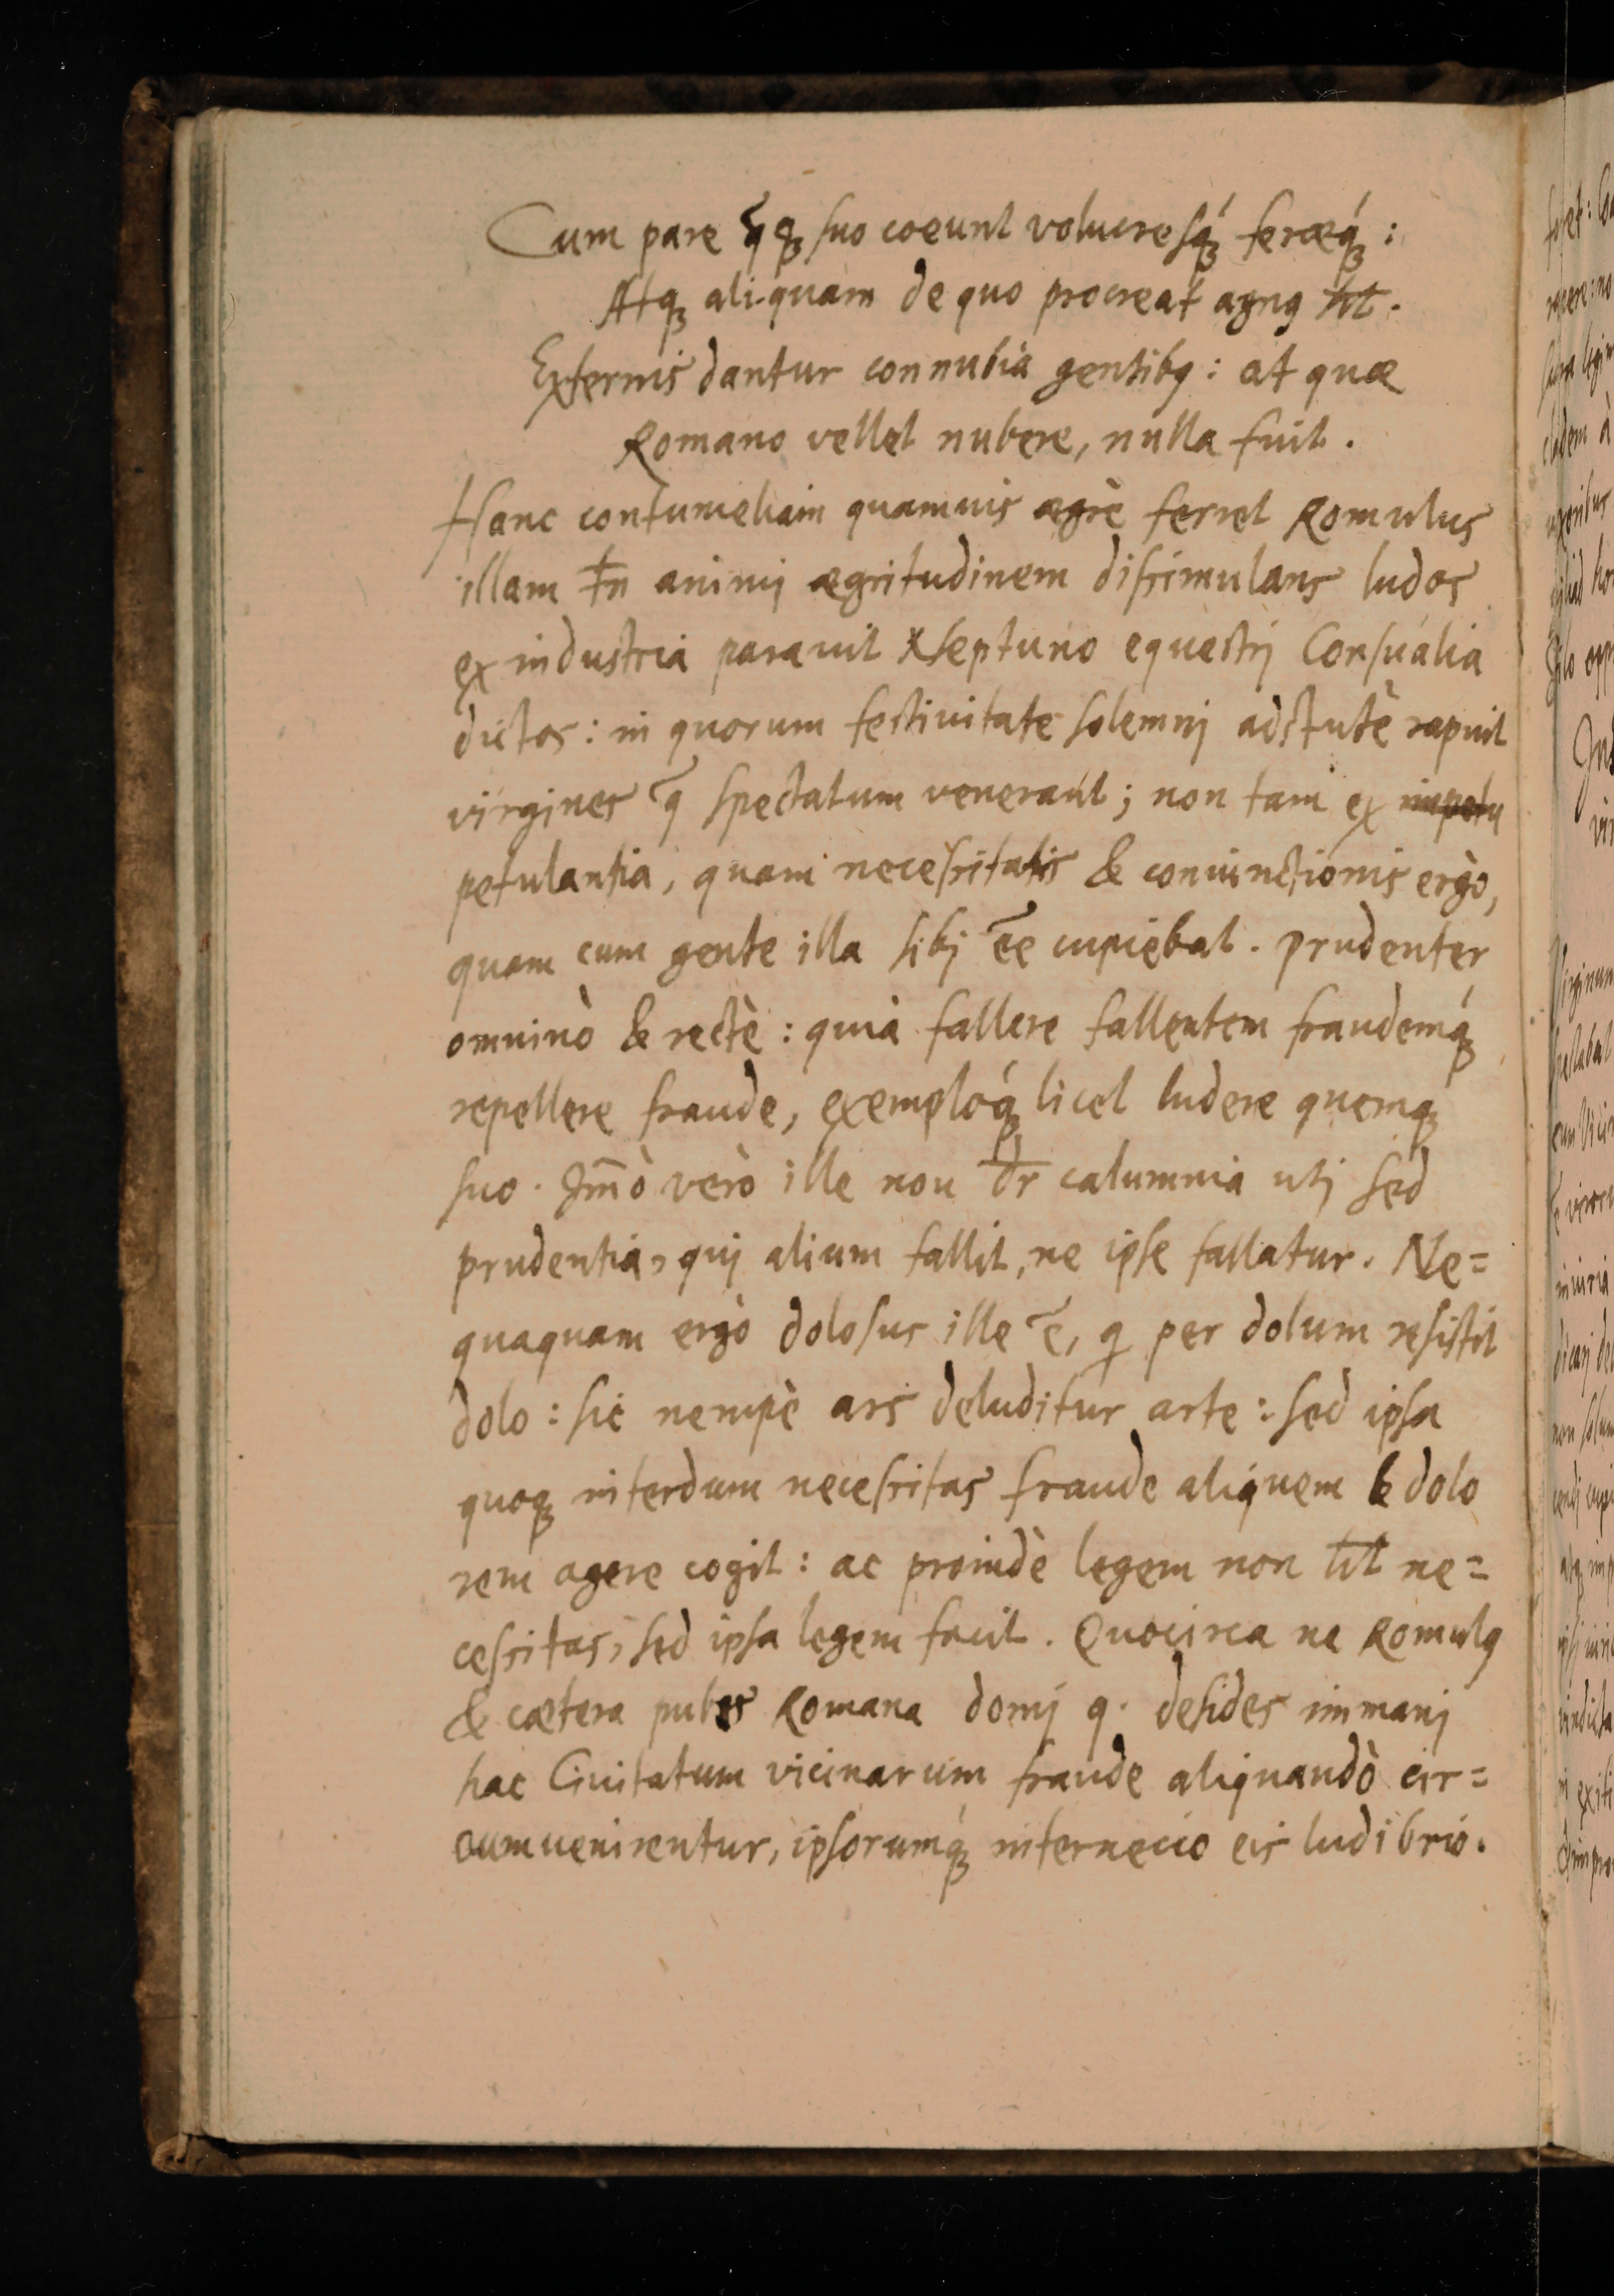 Cum pare q̃ȝ suo coeunt volucresq́ȝ feræq́ȝ:
Atqȝ aliquam de quo procreat agnꝰ ħt.
Externis dantur connubia gentibꝰ: at quæ
Romano vellet nubere, nulla fuit.
Hanc contumeliam quamuis ægrè ferret Romulus
illam tñ animj ægritudinem dissimulans ludos
ex industria parauit Neptuno equestrj Consualia
dictos: in quorum festiuitate solemnj adstutè rapuit
virgines q̃ spectatum venerant; non tam ex impetu
petulantia, quam necessitatis & coniunctionis ergò,
quam cum gente illa sibj ẽe cupiebat. prudenter
omninò & rectè: quià fallere fallentem fraudemq́ȝ
repellere fraude, exemploq́ȝ licet ludere quemqȝ
suo. Im̃ò verò ille non dr̃ calumnia utj sed
prudentia, quj alium fallit, ne ipse fallatur. Ne=
quaquam ergò dolosus ille ẽ, q per dolum resistit
dolo: sic nempè ars deluditur arte: sed ipsa
quoqȝ interdum necessitas fraude aliquem & dolo
rem agere cogit: ac proindè legem non ħt ne=
cessitas, sed ipsa legem facit. Quocirca ne Romulꝰ
& cætera pubes Romana domj q. desides immanj
hac Ciuitatum vicinarum fraude aliquandò cir=
cumuenirentur, ipsorumq́ȝ internecio eis ludibrio.